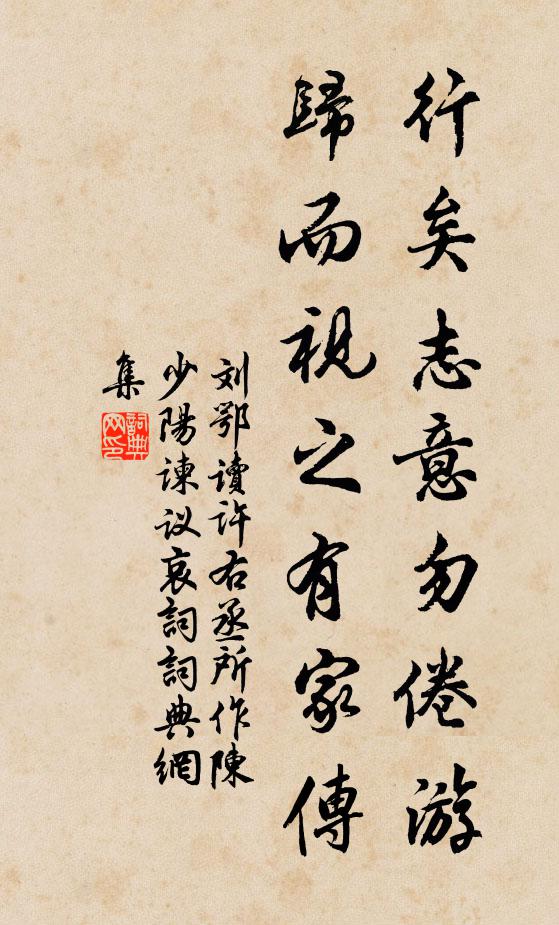 行矣志意勿倦游
歸而視之有家傳
刘鄂讀許右丞所作陳
少陽諫议哀詞詞典網
集
詞典
网印